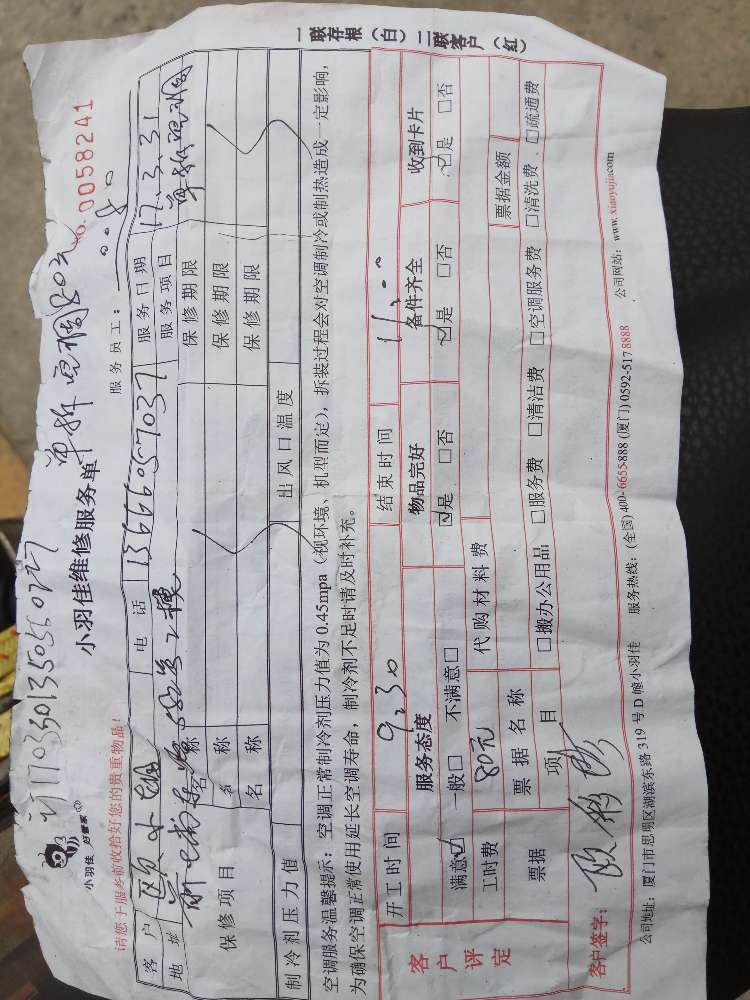 一联存根（白）二联客户（红）
No.0058241
小羽佳 好管家
请您于服务前收拾好您的贵重物品！
小羽佳维修服务单
单拆空调80元
服务员工：
客户 电话 13666057037 服务日期 17.3.31
地址 服务项目 单拆空调
保修项目 名称 保修期限
名称 保修期限
名称 保修期限
制冷剂压力值 出风口温度
空调服务温馨提示：空调正常制冷剂压力值为0.45mpa（视环境、机型而定），拆装过程会对空调制冷或制热造成一定影响，
为确保空调正常使用延长空调寿命，制冷剂不足时请及时补充。
客户评定
开工时间 9.30 结束时间
服务态度 物品完好 备件齐全 收到卡片
满意☑ 一般□ 不满意□ ☑是 □否 ☑是 □否 ☑是 □否
工时费 80元 代购材料费
票据 票据名称 票据金额
项目 □搬办公用品 □服务费 □清洁费 □空调服务费 □清洗费 □疏通费
客户签字：
公司地址：厦门市思明区湖滨东路319号D幢小羽佳 服务热线：(全国)400-6655-888 (厦门)0592-517 8888 公司网站：www.xiaoyujia.com